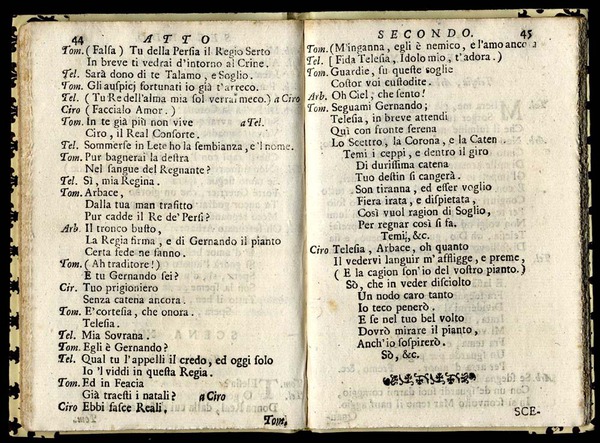 44 ATTO
Tom. (Falsa) Tu della Persia il Regio Serto
In breve ti vedrai d'intorno al Crine.
Tel. Sarà dono di te Talamo, e Soglio.
Tom. Gli auspicj fortunati io già t'arreco.
Tel. (Tu Re dell'alma mia sol verrai meco.) a Ciro
Ciro (Faccialo Amor.)
Tom. In te già più non vive a Tel.
Ciro, il Real Consorte.
Tel. Sommerse in Lete ho la sembianza, e'l nome.
Tom. Pur bagnerai la destra
Nel sangue del Regnante?
Tel. Sì, mia Regina.
Tom. Arbace,
Dalla tua man trafitto
Pur cadde il Re de' Persi?
Arb. Il tronco busto,
La Regia firma, e di Gernando il pianto
Certa fede ne fanno.
Tom. (Ah traditore!)
E tu Gernando sei?
Cir. Tuo prigioniero
Senza catena ancora.
Tom. E' cortesia, che onora.
Telesia.
Tel. Mia Sovrana.
Tom. Egli è Gernando?
Tel. Qual tu l'appelli il credo, ed oggi solo
Io 'l viddi in questa Regia.
Tom. Ed in Feacia
Già traesti i natali? a Ciro
Ciro Ebbi fasce Reali,
Tom.
SECONDO. 45
Tom. (M'inganna, egli è nemico, e l'amo ancora
Tel. [Fida Telesia, Idolo mio, t'adora.)
Tom. Guardie, su queste soglie
Costor voi custodite.
Arb. Oh Ciel, che sento!
Tom. Seguami Gernando;
Telesia, in breve attendi
Quì con fronte serena
Lo Scettro, la Corona, e la Caten
Temi i ceppi, e dentro il giro
Di durissima catena
Tuo destin si cangerà.
Son tiranna, ed esser voglio
Fiera irata, e dispietata,
Così vuol ragion di Soglio,
Per regnar così si fa.
Temi, &c.
Ciro Telesia, Arbace, oh quanto
Il vedervi languir m'affligge, e preme,
(E la cagion son'io del vostro pianto.)
Sò, che in veder disciolto
Un nodo caro tanto
Io teco penerò.
E se nel tuo bel volto
Dovrò mirare il pianto,
Anch'io sospirerò.
Sò, &c.
SCE-